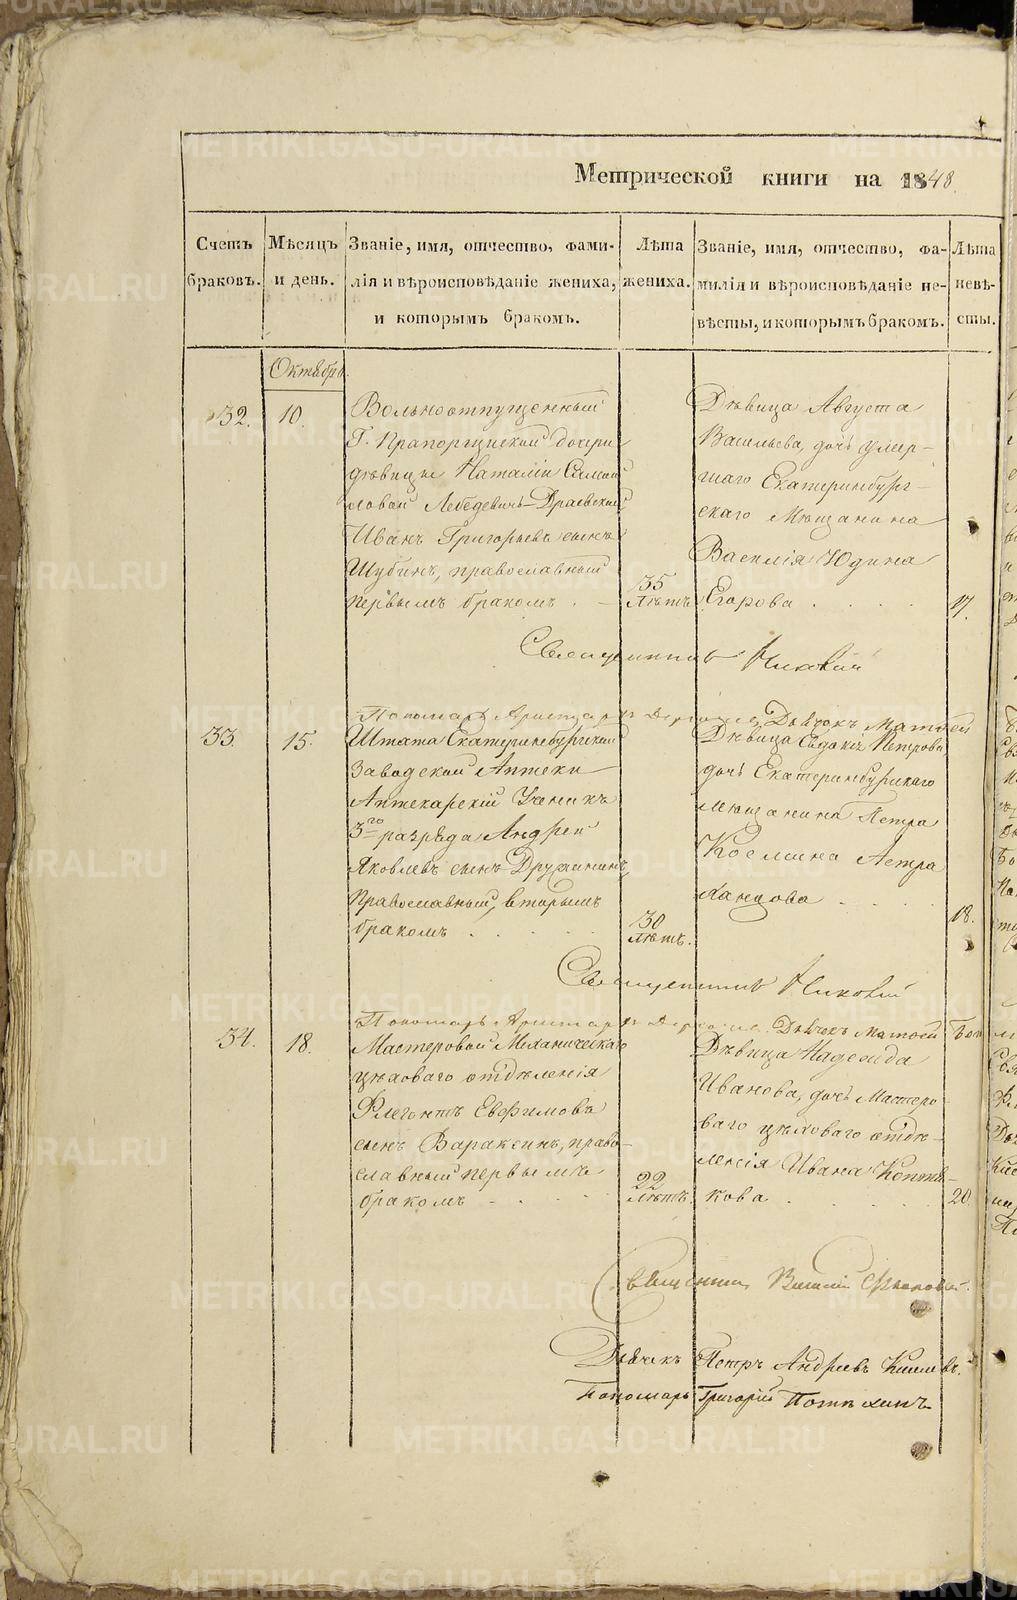 Метрической книги на 1848.
Счетъ браковъ.
Мѣсяцъ и день.
Званіе, имя, отчество, фами-
лія и вѣроисповѣданіе жениха,
и которымъ бракомъ.
Лѣта жениха.
Званіе, имя, отчество, фа-
милія и вѣроисповѣданіе не-
вѣсты, и которымъ бракомъ.
Лѣта невѣ-
сты.
Октябрь.
32.
10.
Вольноотпущенный
Г. Прапорщичьей дочери
дѣвицы Наталіи
Лебедевичъ-Драевской
Иванъ Григорьевъ сынъ
Шубинъ, православный
первымъ бракомъ.
35
лѣтъ
Дѣвица Августа
Васильева, дочь умер-
шаго Екатеринбург-
скаго Мѣщанина
Василія Юдина
Егорова
17.
Священникъ
Пономарь Аристархъ Дьячокъ Матвей
33.
15.
Штата Екатеринбургской
Заводской Аптеки
Аптекарскій Ученикъ
3го разряда Андрей
Яковлевъ сынъ Дружининъ,
Православный, вторымъ
бракомъ
30
лѣтъ.
Дѣвица Евдокія Петрова,
дочь Екатеринбургскаго
Мѣщанина Петра
Космина Астра
ханцова
18.
Священникъ
Пономарь Аристархъ Дьячекъ Матвей
34.
18.
Мастеровой Механическаго
цѣховаго отдѣленія
Флегонтъ Евфимовъ
сынъ Вараксинъ, право-
славный первымъ
бракомъ
22
лѣтъ
Дѣвица Надежда
Иванова, дочь Мастеро-
ваго цѣховаго отдѣ-
ленія Ивана Коптя-
кова
20
Священникъ Василій
Дьячекъ Петръ Андреевъ
Пономарь Григорій Потѣхинъ
METRIKI.GASO-URAL.RU